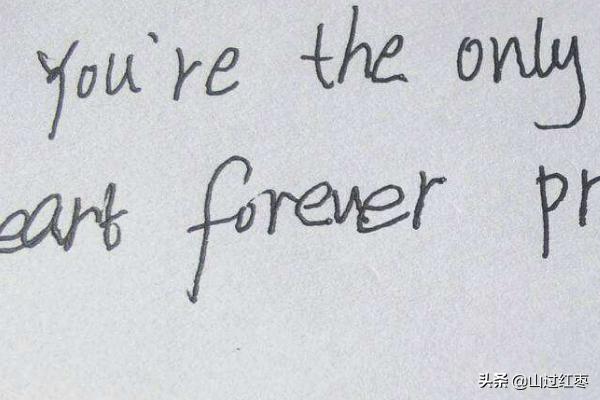 You're the only
eart forever pr
头条 @山过红枣